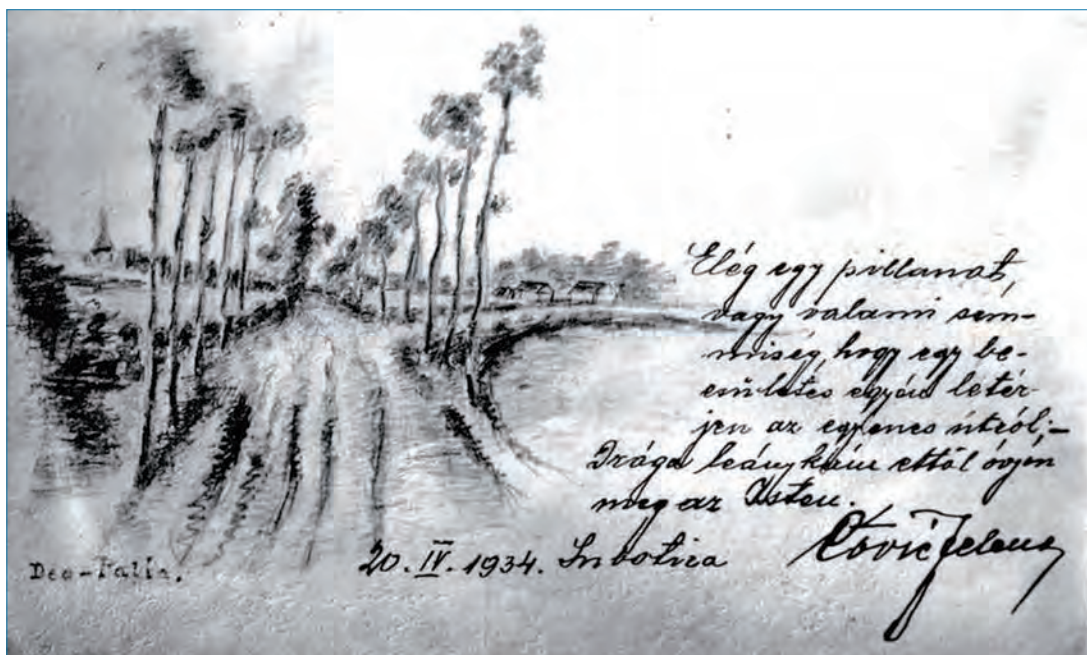 Elég egy pillanat,
vagy valami sem-
miség, hogy egy be-
csületes egyén letér-
jen az egyenes útról; –
Drága leánykám ettől óvjon
meg az Isten.
20. IV. 1934. Subotica
Jelena
Deo-Palić.